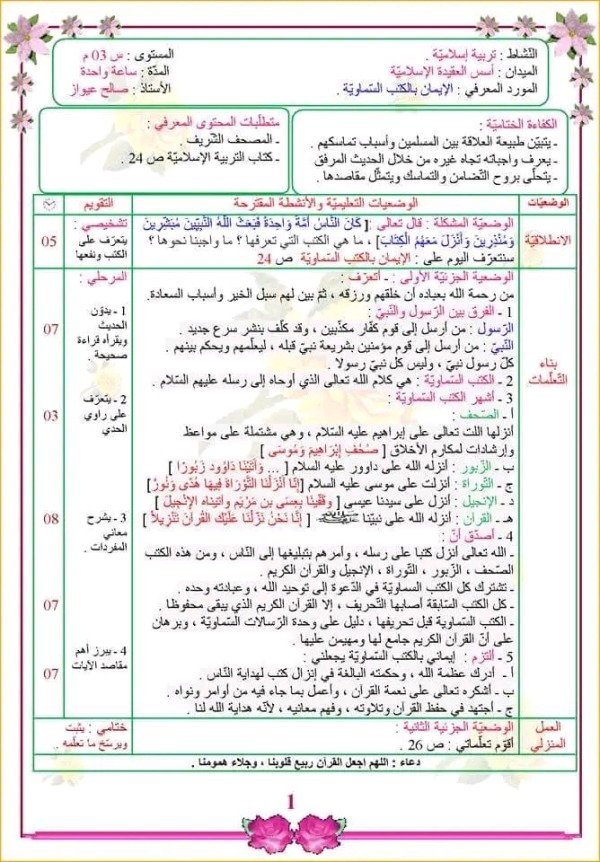 النّشاط : تربية إسلاميّة .
المستوى : س 03 م
الميدان : أسس العقيدة الإسلاميّة
المدّة : ساعة واحدة
المورد المعرفي : الإيمان بالكتب السّماويّة .
الأستاذ : صالح عيواز
الكفاءة الختاميّة :
ـ يتبيّن طبيعة العلاقة بين المسلمين وأسباب تماسكهم .
ـ يعرف واجباته تجاه غيره من خلال الحديث المرفق
ـ يتحلّى بروح التّضامن والتماسك ويتمثّل مقاصدها .
متطلّبات المحتوى المعرفي :
ـ المصحف الشّريف .
ـ كتاب التربية الإسلاميّة ص 24 .
الوضعيّات
الوضعيات التعليميّة والأنشطة المقترحة
التقويم
الانطلاقيّة
الوضعيّة المشكلة : قال تعالى :[ كَانَ النَّاسُ أمَّة وَاحِدَةً فَبَعَثَ اللَّهُ النَّبِيِّينَ مُبَشِّرِينَ
وَمُنْذِرِينَ وَأَنْزَلَ مَعَهُمُ الْكِتَابَ] ، ما هي الكتب التي تعرفها ؟ ما واجبنا نحوها ؟
سنتعرّف اليوم على : الإيمان بالكتب السّماويّة ص 24
تشخيصي :
يتعرّف على
الكتب ونفعها
05
بناء
التّعلّمات
الوضعية الجزئية الأولى : ـ أتعرّف :
من رحمة الله بعباده أن خلقهم ورزقه ، ثمّ بين لهم سبل الخير وأسباب السعادة.
1 ـ الفرق بين الرّسول والنّبيّ :
الرّسول : من أرسل إلى قوم كفّار مكذّبين ، وقد كلّف بنشر شرع جديد .
النّبيّ : من أرسل إلى قوم مؤمنين بشريعة نبيّ قبله ، ليعلّمهم ويحكم بينهم .
كلّ رسول نبيّ ، وليس كل نبيّ رسولا .
2 ـ الكتب السّماويّة : هي كلام الله تعالى الذي أوحاه إلى رسله عليهم السّلام .
3 ـ أشهر الكتب السّماويّة :
أ ـ الصّحف :
أنزلها اللت تعالى على إبراهيم عليه السّلام ، وهي مشتملة على مواعظ
وإرشادات لمكارم الأخلاق [ صُحُفِ إِبْرَاهِيمَ وَمُوسَى ]
ب ـ الزّبور : أنزله الله على داوور عليه السلام [ ... وَآتَيْنَا دَاوُودَ زَبُورًا ]
ج ـ التّوراة : أنزلت على موسى عليه السلام [إِنَّا أَنْزَلْنَا التَّوْرَاةَ فِيهَا هُدًى وَنُورٌ]
د ـ الإنجيل : أنزل على سيدنا عيسى [ وقفّينا بعِسى بن مَرْيَم وآتيناه الإنْجيلَ ]
هـ ـ القرآن : أنزله الله على نبيّنا ﷺ [ إِنَّا نَحْنُ نَزَّلْنَا عَلَيْكَ الْقُرْآنَ تَنْزِيلًا ]
4 ـ أصدّق أنّ :
ـ الله تعالى أنزل كتبا على رسله ، وأمرهم بتبليغها إلى النّاس ، ومن هذه الكتب
الصّحف ، الزّبور ، التّوراة ، الإنجيل والقرآن الكريم .
ـ تشترك كل الكتب السماويّة في الدّعوة إلى توحيد الله ، وعبادته وحده .
ـ كل الكتب السّابقة أصابها التّحريف ، إلا القرآن الكريم الذي يبقى محفوظا .
ـ الكتب السّماوية قبل تحريفها ، دليل على وحدة الرّسالات السماويّة ، وبرهان
على أنّ القرآن الكريم جامع لها ومهيمن عليها .
5 ـ ألتزم : إيماني بالكتب السّماويّة يجعلني :
أ ـ أدرك عظمة الله ، وحكمته البالغة في إنزال كتب لهداية النّاس .
ب ـ أشكره تعالى على نعمة القرآن ، وأعمل بما جاه فيه من أوامر ونواه .
ج ـ أجتهد في حفظ القرآن وتلاوته ، وفهم معانيه ، لأنّه هداية الله لنا .
المرحلي :
1 ـ يدوّن
الحديث
ويقرأه قراءة
صحيحة .
2 ـ يتعرّف
على راوي
الحدي
3 ـ يشرح
معاني
المفردات .
4 ـ يبرز أهم
مقاصد الآيات
07
03
08
07
07
العمل
المنزلي
الوضعيّة الجزئية الثانية :
أقوّم تعلّماتي : ص 26 .
ختامي : يثبت
ويرسّخ ما تعلّمه .
دعاء : اللهم اجعل القرآن ربيع قلوبنا ، وجلاء همومنا .
1